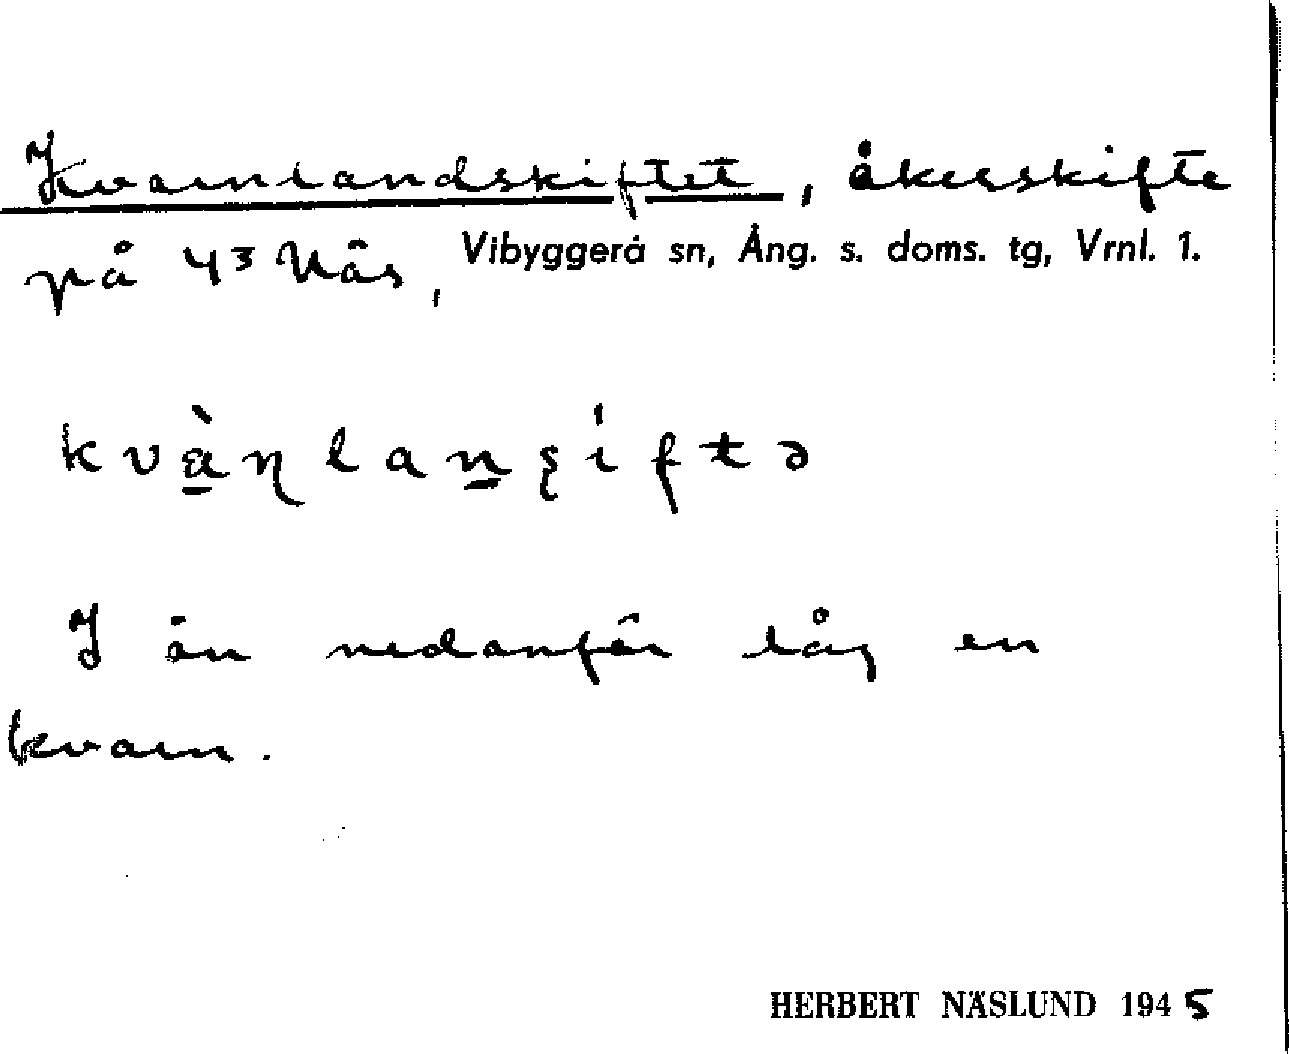 Kvarnlandskiftet, åkerskifte
på 4³ Näs, Vibyggerå sn, Ång. s. doms. tg, Vrnl. 1.
kvà̱ɳlaṉʂiftə
I ån nedanför låg en
kvarn.
HERBERT NÄSLUND 1945